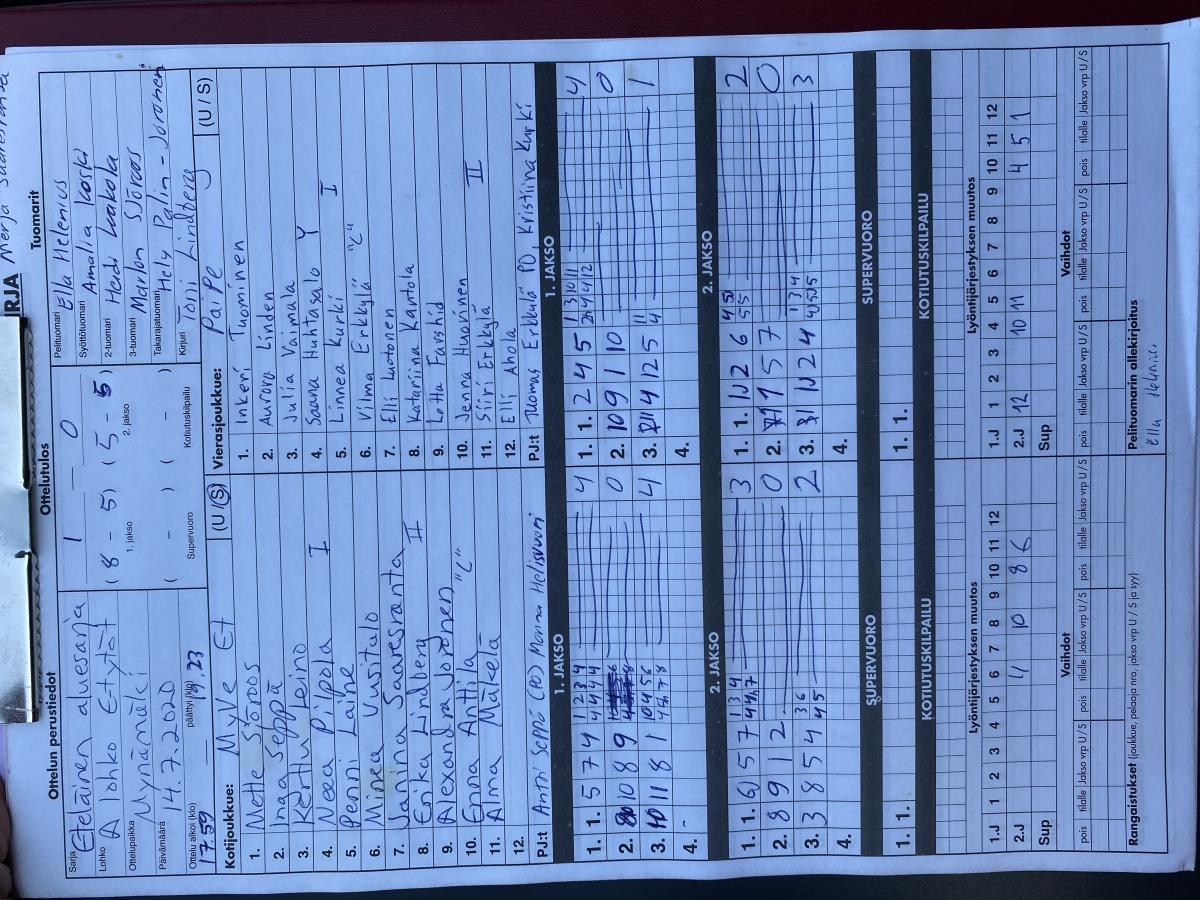 RJA Merja Saaresranta
Ottelun perustiedot
Sarja Eteläinen aluesarja
Lohko A lohko E-tytöt
Ottelupaikka Mynämäki
Päivämäärä 14.7.2020
Ottelu alkoi (klo) 17.59 päättyi (klo) 19.23
Ottelutulos
1 — 0
( 8 - 5 ) ( 5 - 5 )
1. jakso 2. jakso
( - ) ( - )
Supervuoro Kotiutuskilpailu
Tuomarit
Pelituomari Ella Helenius
Syöttötuomari Amalia Koski
2-tuomari Heidi Laakola
3-tuomari Marlon Sjöroos
Takarajatuomari Hely Palin-Joronen
Kirjuri Toni Lindberg
Kotijoukkue: MyVe Et (U / S)
1. Mette Sjöroos
2. Inga Seppä
3. Kerttu Leino
4. Neea Pilpola I
5. Penni Laine
6. Minea Uusitulo
7. Janina Saaresranta
8. Erika Lindberg II
9. Alexandra Joronen
10. Enna Anttila "C"
11. Alma Mäkelä
12.
PJ:t Antti Seppä (PO) Menna Helisvuori
Vierasjoukkue: PaiPe (U / S)
1. Inkeri Tuominen
2. Aurora Linden
3. Julia Varimala
4. Saana Huhtasalo Y
5. Linnea Kurki I
6. Vilma Erkkylä "C"
7. Elli Luotonen
8. Katariina Kantola
9. Lotta Farshid
10. Jenna Huovinen II
11. Siiri Erkkylä
12. Elli Ahola
PJ:t Tuomas Erkkilä PO, Kristiina Kurki
1. JAKSO
1. 1. 5 7 4 1 2 3 4 4
4 4 4 4
2. 10 8 9 0
3. 11 8 1 4
4. -
1. JAKSO
1. 1. 2 4 5 1 3 10 11 4
2. 10 9 1 10 0
3. 4 12 5 11 1
4
4.
2. JAKSO
1. 1. 6 5 7 1 3 4 3
2. 8 9 1 2 0
3. 3 8 5 4 3 6 2
4 5
4.
2. JAKSO
1. 1. 2 6 4 5 2
5 5
2. 1 5 7 0
3. 2 4 1 3 4 3
4.
SUPERVUORO
1. 1.
SUPERVUORO
1. 1.
KOTIUTUSKILPAILU
KOTIUTUSKILPAILU
Lyöntijärjestyksen muutos
1.J 1 2 3 4 5 6 7 8 9 10 11 12
2.J 4 10 8 6
Lyöntijärjestyksen muutos
1.J 1 2 3 4 5 6 7 8 9 10 11 12
2.J 12 10 11 4 5 1
Sup
Sup
Vaihdot
pois tilalle Jakso vrp U / S pois tilalle Jakso vrp U / S pois tilalle Jakso vrp U / S
Vaihdot
pois tilalle Jakso vrp U / S pois tilalle Jakso vrp U / S pois tilalle Jakso vrp U / S
Rangaistukset (joukkue, pelaaja nro, jakso vrp U / S ja syy)
Pelituomarin allekirjoitus
Ella Helenius